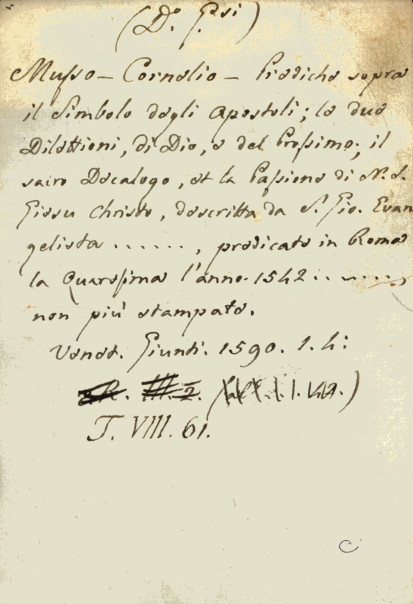 (D. Gesi)
Musso - Cornelio - Prediche sopra
il Simbolo degli Apostoli; le due
Dilettioni, di Dio, e del Prossimo; il
sacro Decalogo, et la Passione di N. S.
Giesu Christo, descritta da S. Gio. Evan
gelista ......, predicate in Roma
la Quaresima l'anno. 1542......
non più stampate.
Venet. Giunti. 1590. 1. 4:
T. VIII. 61.
C